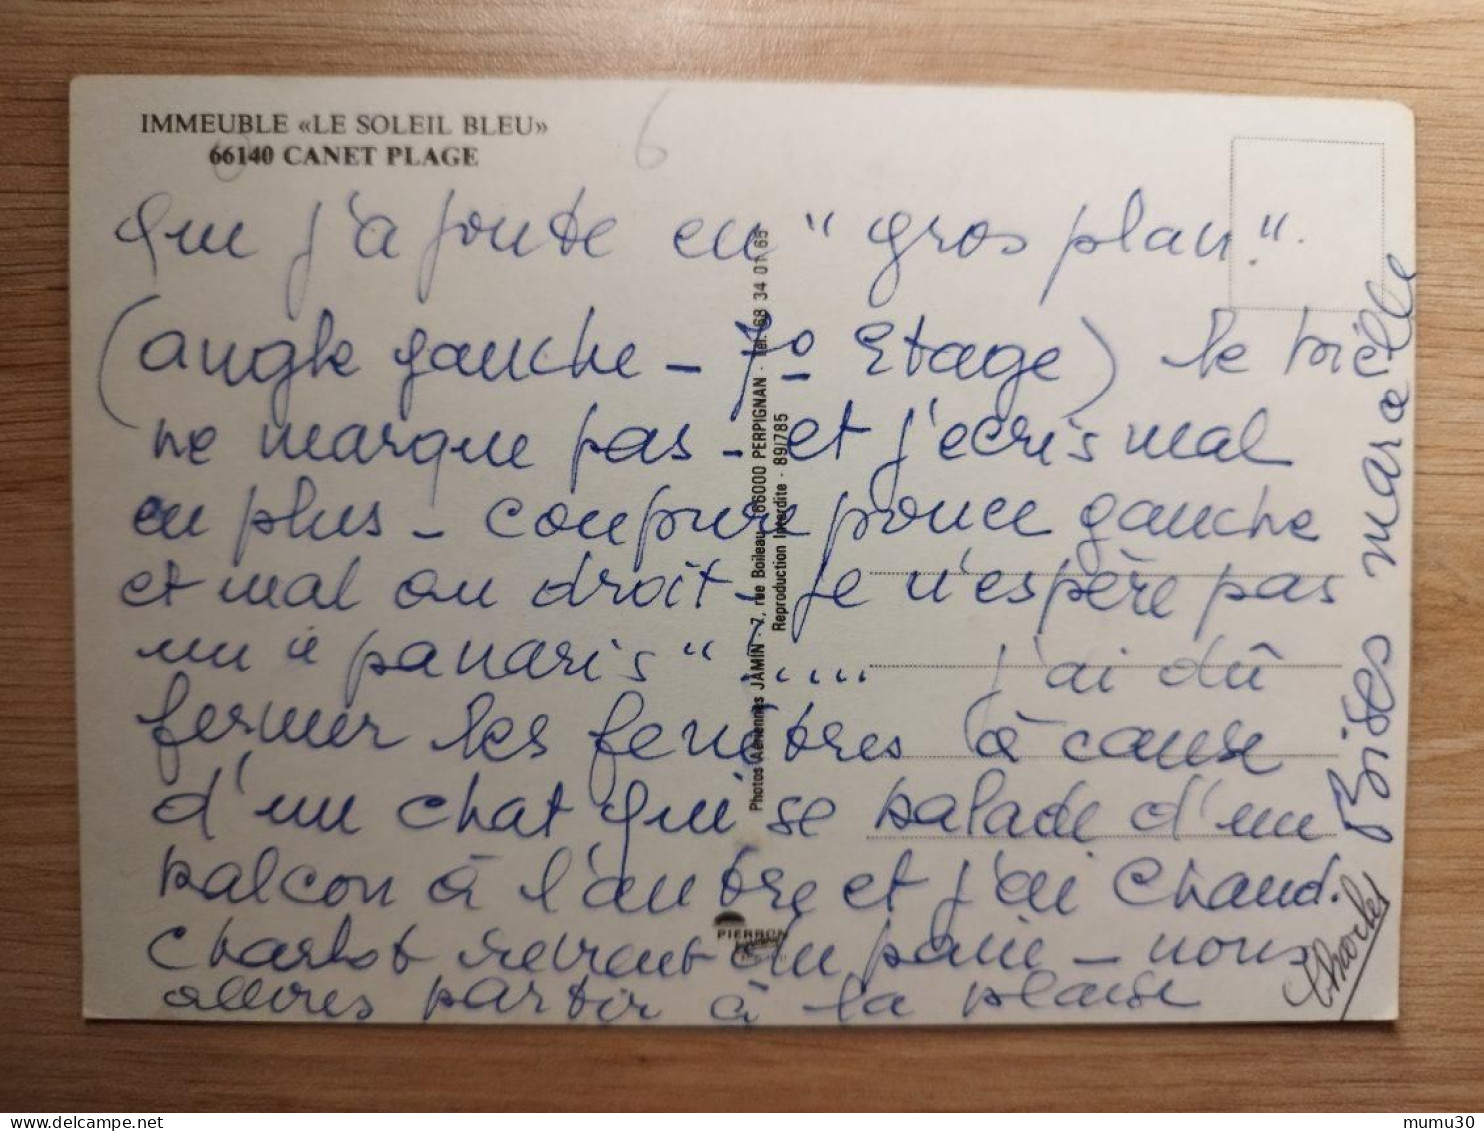 IMMEUBLE «LE SOLEIL BLEU»
66140 CANET PLAGE
6
Que j'ajoute en "gros plan".
(angle gauche - 7º Etage) le
ne marque pas - et j'ecris mal
en plus - coupure pouce gauche
et mal au droit - je n'espère pas
un "panaris" ..... j'ai dû
fermer les fenêtres à cause
d'un chat qui se balade d'un
balcon à l'autre et j'ai chaud.
Charlot revient du pain - nous
allons partir à la plage
Bises marcelle
Charles
Photos Aériennes JAMIN - 7, rue Boileau - 66000 PERPIGNAN - Tél. 68 34 01 65
Reproduction Interdite - 89/785
PIERRON
mumu30